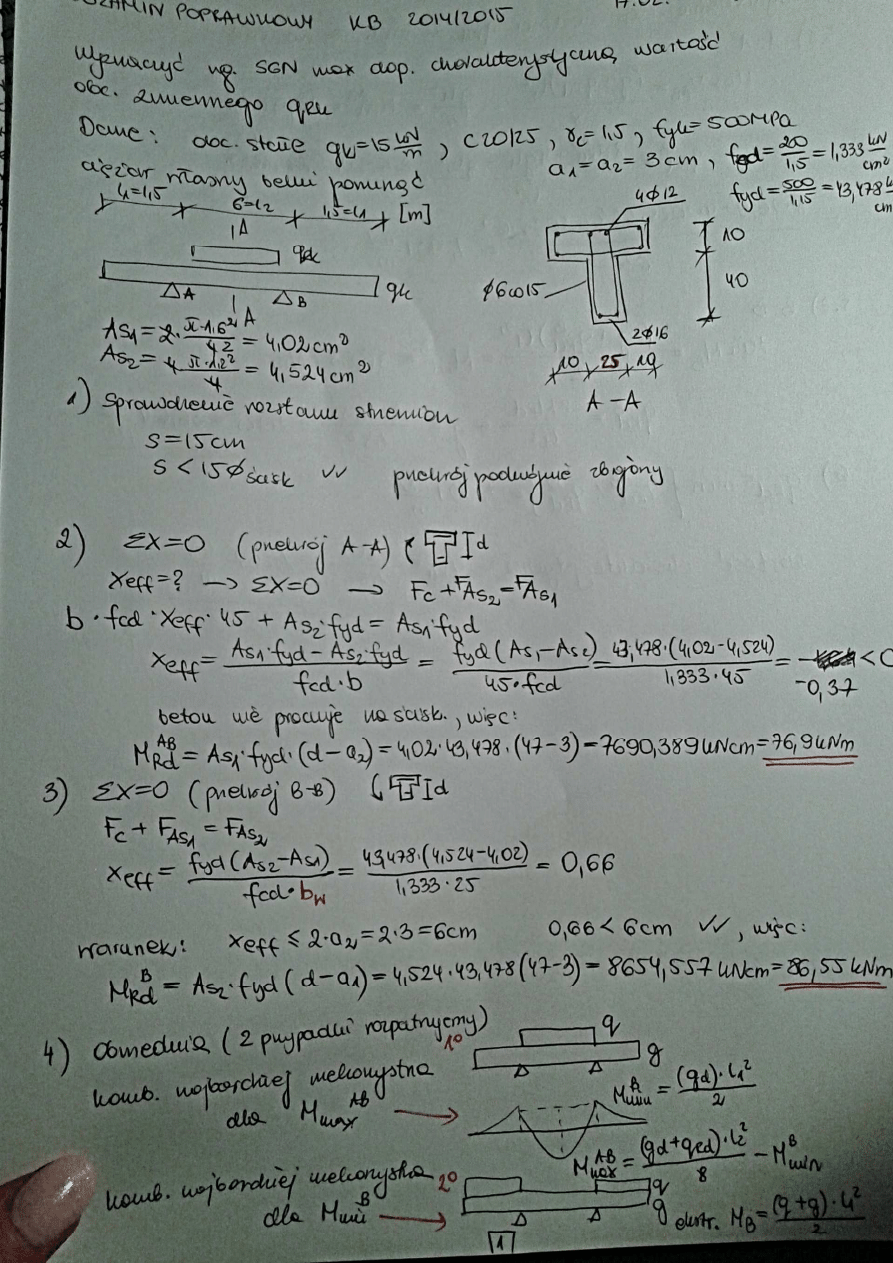 EGZAMIN POPRAWKOWY KB 2014/2015
17.02.
Wyznaczyć wg. SGN max dop. charakterystyczną wartość
obc. zmiennego qku
Dane: obc. stałe gk=15 kN/m, C20/25, γc=1,5, fyk=500MPa
ciężar własny belki pominąć
a1=a2=3cm, fcd=20/1,5=1,333 kN/cm²
fyd=500/1,15=43,478
l1=1,5 6=l2 1,5=l1 [m]
A
4Φ12
qdk
gk
A B
A
10
40
Φ6co15
2Φ16
10 25 10
A-A
As1=2·π·1,6²/4=4,02cm²
As2=4·π·1,2²/4=4,524cm²
1) Sprawdzenie rozstawu strzemion
s=15cm
s<15Φścisk √√ przekrój podwójnie zbrojony
2) ΣX=0 (przekrój A-A) d
Xeff=? → ΣX=0 → Fc+FAs2=FAs1
b·fcd·Xeff·45+As2·fyd=As1·fyd
Xeff=As1·fyd-As2·fyd/fcd·b=fyd(As1-As2)/45·fcd=43,478·(4,02-4,524)/1,333·45=-0,37<0
beton nie pracuje na ścisk., więc:
MRd^AB=As1·fyd·(d-a2)=4,02·43,478·(47-3)=7690,389kNcm=76,9kNm
3) ΣX=0 (przekrój B-B) d
Fc+FAs1=FAs2
Xeff=fyd(As2-As1)/fcd·bw=43,478·(4,524-4,02)/1,333·25=0,66
warunek: Xeff≤2·a2=2·3=6cm 0,66<6cm √√, więc:
MRd^B=As2·fyd(d-a1)=4,524·43,478(47-3)=8654,557kNcm=86,55kNm
4) Obciążenia (2 przypadki rozpatrujemy)
1° q
g
komb. najbardziej niekorzystna
dla Mmax^AB →
Mmin^A=(gd)·l1²/2
Mmax^AB=(gd+qed)·l2²/8-Mmin^B
komb. najbardziej niekorzystna 2° q
dla Mmin^B → g ekstr. MB=(q+g)·l1²/2
1